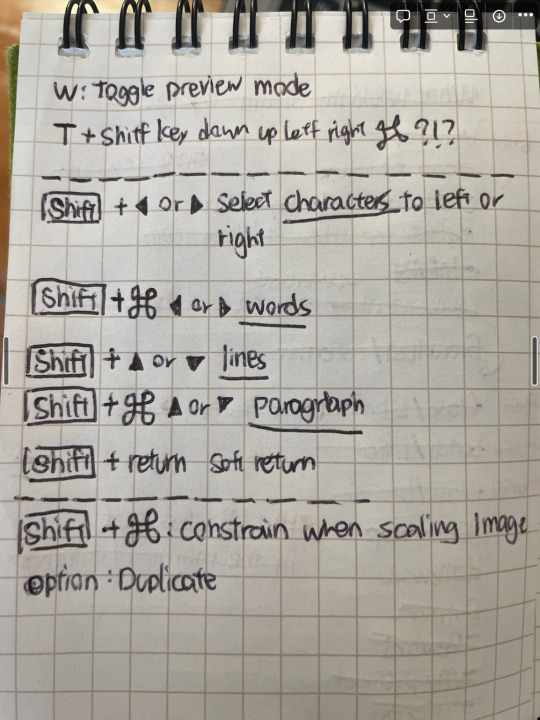 W: toggle preview mode
T + Shift key down up left right ⌘ ?!?
Shift + ◀ or ▶ select characters to left or
right
Shift + ⌘ ◀ or ▶ words
Shift + ▲ or ▼ lines
Shift + ⌘ ▲ or ▼ paragraph
Shift + return soft return
Shift + ⌘ : constrain when scaling image
option : Duplicate